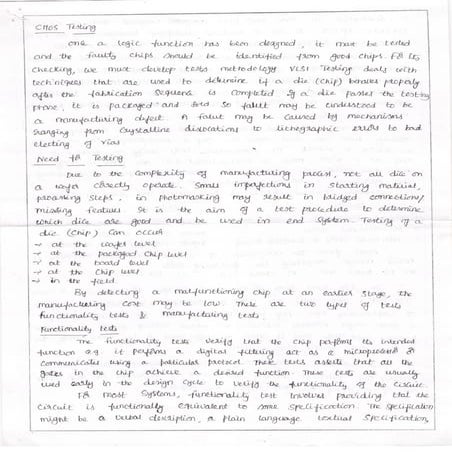 CMOS Testing
Once a logic function has been designed, it must be tested
and the faulty chips should be identified from good chips. For its
checking, we must develop tests methodology VLSI Testing deals with
techniques that are used to determine if a die (chip) behaves properly
after the fabrication sequence is completed if a die passes the testing
phase, it is packaged and sold so fault may be understood to be
a manufacturing defect. A fault may be caused by mechanisms
ranging from crystalline dislocations to lithographic errors to bad
etching of vias
Need for Testing
Due to the complexity of manufacturing process, not all die on
a wafer correctly operate. Small imperfections in starting material,
processing steps, in photomasking may result in bridged connections/
missing features It is the aim of a test procedure to determine
which dice are good and be used in end system. Testing of a
die (chip) can occur
→ at the wafer level
→ at the packaged chip level
→ at the board level
→ at the chip level
→ in the field
By detecting a malfunctioning chip at an earlier stage, the
manufacturing cost may be low. There are two types of tests
functionality tests & manufacturing tests
Functionality tests
The functionality tests verify that the chip performs its intended
function e.g it performs a digital filtering act as a microprocessor or
communicate using a particular protocol. These tests asserts that all the
gates in the chip achieve a desired function. These tests are usually
used early in the design cycle to verify the functionality of the circuit.
For most systems, functionality test involves providing that the
circuit is functionally equivalent to some specification. The specification
might be a verbal description, a plain language textual specification,